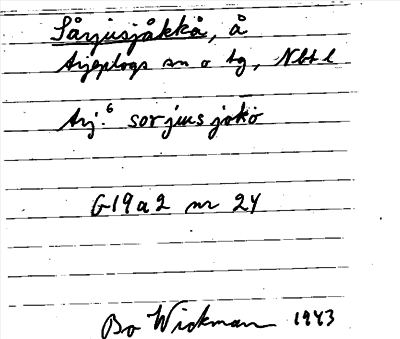 Sårjusjåkkå, å
Arjeplogs sn o tg, Nbt l
Arj.⁶ sorjus jokö
G19a2 nr 24
Bo Wickman 1943